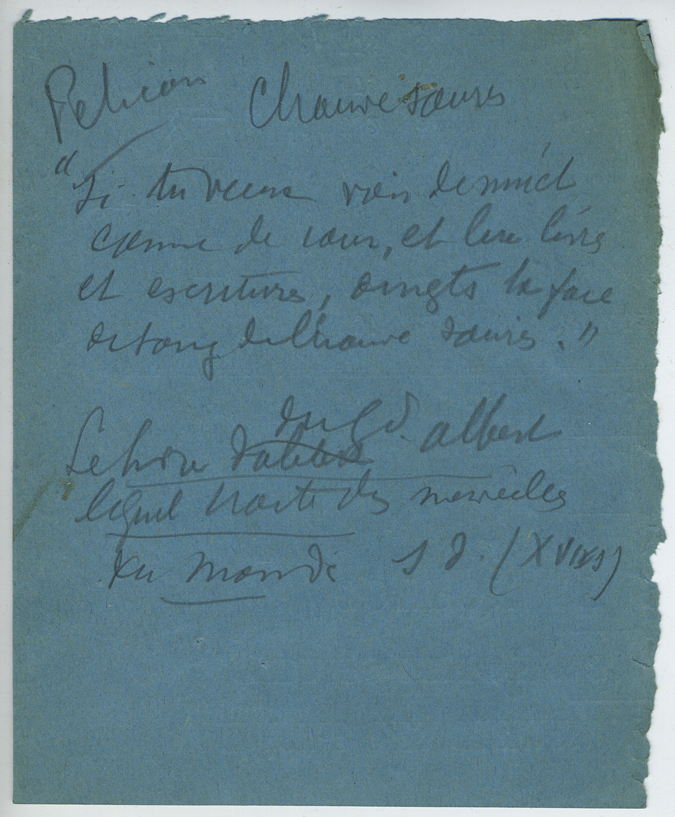 Pelican Chauve souris
"Si tu veux voir de nuict
comme de iour, et lire livres
et escritures, oingts ta face
de sang de chauve souris."
du Gd albert
Le livre
lequel traite des merveilles
du monde s d. (XVI s)